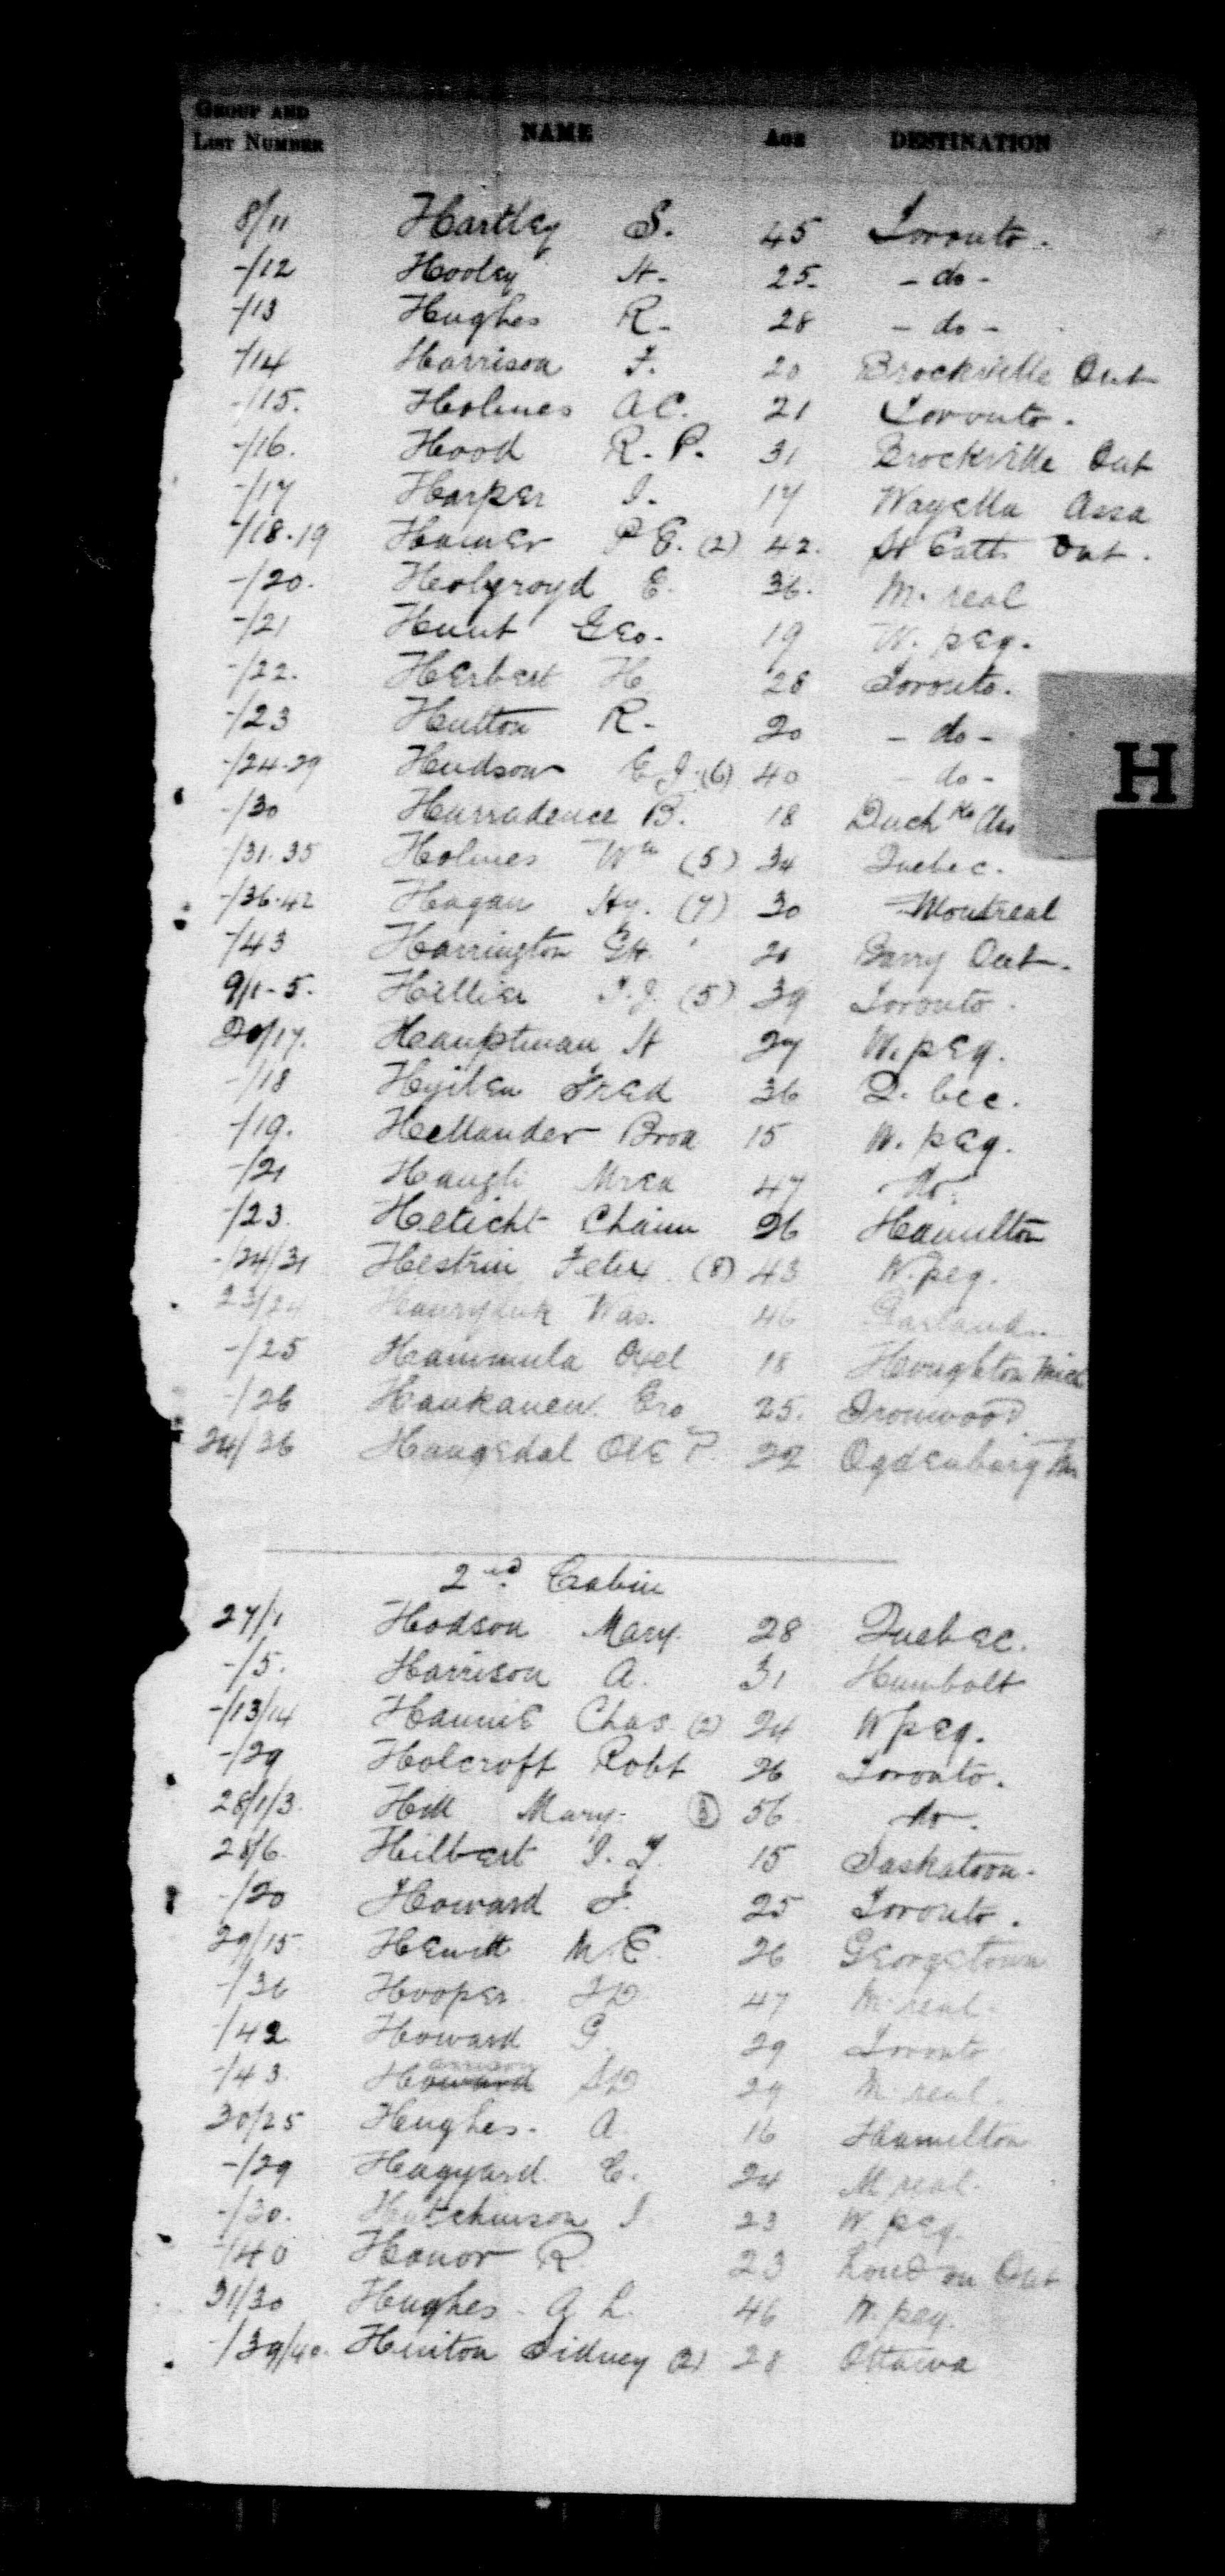 GROUP AND LIST NUMBER NAME AGE DESTINATION
8/11 Hartley S. 45 Toronto.
-/12 Hooley H. 25. - do -
-/13 Hughes R. 28 - do -
-/14 Harrison F. 20 Brockville Ont
-/15. Holmes A.C. 21 Toronto.
-/16. Hood R.P. 31 Brockville Ont
-/17 Harper J. 17 Wapella Assa
-/18-19 Hamer P E. (2) 42. St Catth Ont.
-/20. Holyroyd E. 36. M. real
-/21 Hunt Geo. 19 W. peg.
-/22. Herbert H 28 Toronto.
-/23 Hutton R- 20 - do -
-/24-29 Hudson E J. (6) 40 - do -
-/30 Hurradence B. 18 Duck
H
-/31.35 Holmes Wm (5) 34 Quebec.
-/36-42 Hagan Hy. (7) 30 Montreal
-/43 Harrington 20 Ont.
9/1-5. Hillier (5) 39 Toronto.
20/17. Hauptman H 27 W. peg.
-/18 Fred 36 Q. bec.
-/19. Hellander 15 W. peg.
-/21 Haugli 47 do.
-/23. Heticht Chaim 26 Hamilton
-/24/31 Hestrin (8) 43 W. peg.
23/24 Was. 46 Garland.
-/25 Hammula 18 Houghton Mich
-/26 Haukanen. Ero 25. Ironwood
24/36 Haugedal Ole P. 22 Ogdenburg
2nd Cabin
27/1 Hodson Mary. 28 Quebec.
-/5. Harrison A. 31 Humbolt
-/13/14 Hannie Chas (2) 24 W peg.
-/29 Holcroft Robt 26 Toronto.
28/1/3. Hill Mary. (3) 56 do.
28/6. Hilbert 15 Saskatoon.
-/20 Howard 25 Toronto.
29/15. Hewitt M.E. 26 Georgetown
-/36 Hooper 47 M. real.
-/42 Howard G. 29 Toronto
-/43. Howard arrison 29 M. real.
30/25 Hughes. A 16 Hamilton
-/29 Hagyard C. 24 M real.
-/30. Hutchinson J 23 W. peg.
-/40 Honor R. 23 London Ont
31/30 Hughes. A L. 46 W. peg.
-/39/40. Hinton Sidney (2) 28 Ottawa